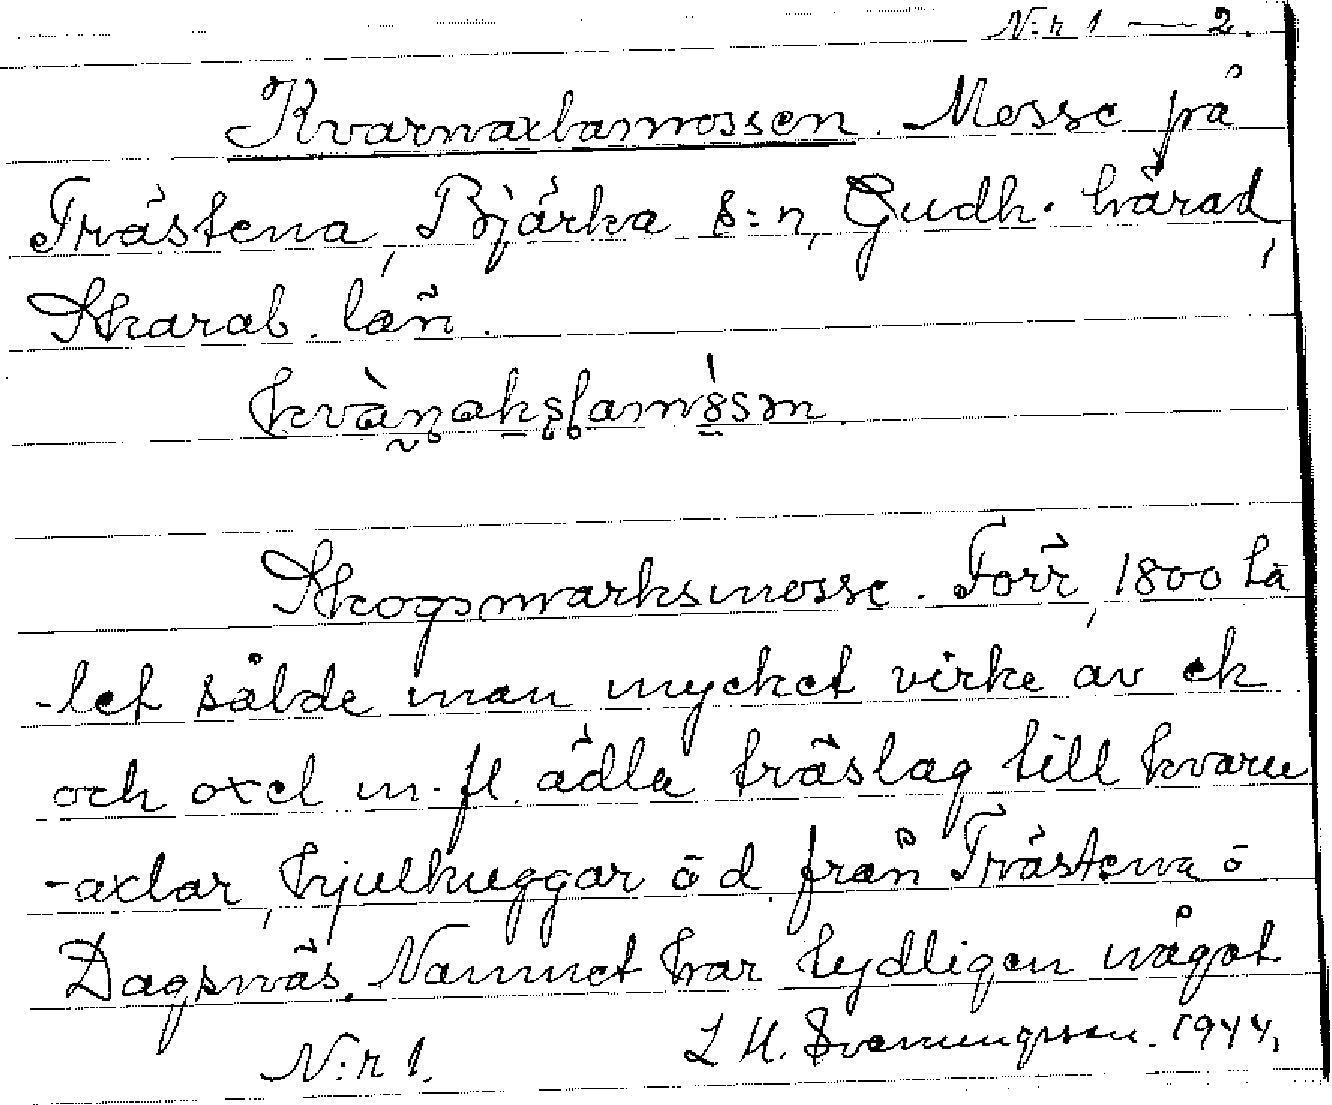 N:r 1 — 2.
Kvarnaxlamossen. Mosse på
Trästena, Bjärka s:n, Gudh. härad,
Skarab. län.
Skogsmarksmosse. Förr, 1800 ta
-let sålde man mycket virke av ek
och oxel m. fl. ädla träslag till kvarn
-axlar, hjulkuggar o d. från Trästena o
Dagsnäs. Namnet har tydligen något
N:r 1. L H. Svanungsson. 1944.